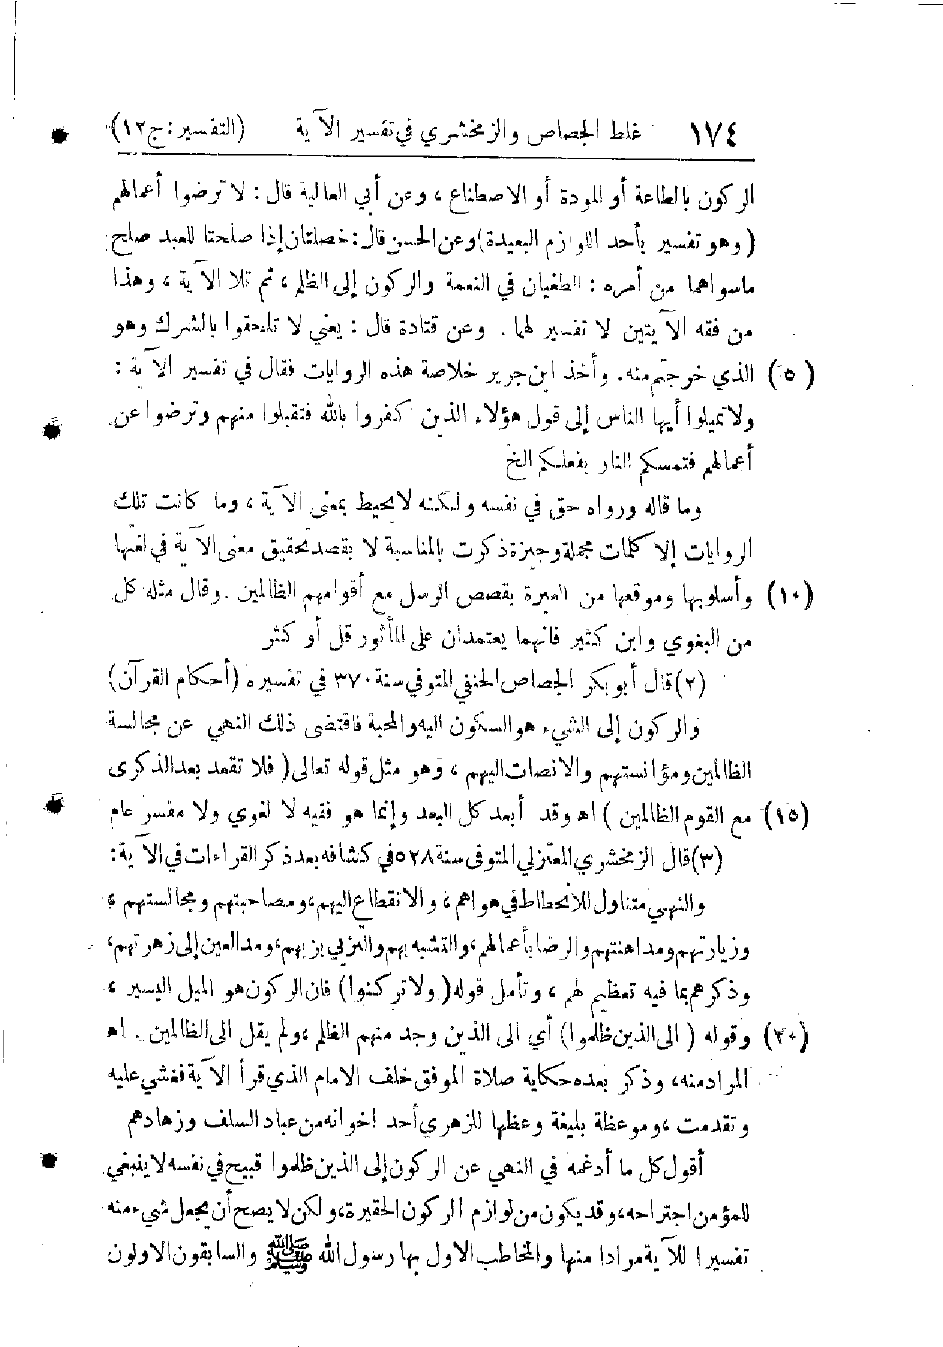 ١٧٤ غلط الجصاص والزمخشري في تفسير الآية (التفسير: ج١٢)
الركون بالطاعة أو المودة أو الاصطناع ، وعن أبي العالية قال : لا ترضوا أعمالهم
( وهو تفسير بأحد اللوازم البعيدة) وعن الحسن قال : خصلتان إذا صلحتا للعبد صلح
ماسواهما من أمره : الطغيان في النعمة والركون إلى الظلم ، ثم تلا الآية ، وهذا
من فقه الآيتين لا تفسير لهما . وعن قتادة قال : يعني لا تلحقوا بالشرك وهو
(٥) الذي خرجتم منه . وأخذ ابن جرير خلاصة هذه الروايات فقال في تفسير الآية :
ولا تميلوا أيها الناس إلى قول هؤلاء الذين كفروا بالله فتقبلوا منهم وترضوا عن
أعمالهم فتمسكم النار بفعلكم الخ
وما قاله ورواه حق في نفسه ولكنه لا يحيط بمعنى الآية ، وما كانت تلك
الروايات إلا كلمات مجملة وجيزة ذكرت بالمناسبة لا بقصد تحقيق معنى الآية في لغتها
(١٠) وأسلوبها وموقعها من العبرة بقصص الرسل مع أقوامهم الظالمين . وقال مثله كل
من البغوي وابن كثير فانهما يعتمدان على المأثور قل أو كثر
(٢) قال أبو بكر الجصاص الحنفي المتوفي سنة ٣٧٠ في تفسيره (أحكام القرآن)
والركون إلى الشيء هو السكون اليه والمحبة فاقتضى ذلك النهي عن مجالسة
الظالمين ومؤانستهم والانصات اليهم ، وهو مثل قوله تعالى ( فلا تقعد بعد الذكرى
(١٥) مع القوم الظالمين ) اهـ وقد أبعد كل البعد وإنما هو فقيه لا لغوي ولا مفسر عام
(٣) قال الزمخشري المعتزلي المتوفى سنة ٥٢٨ في كشافه بعد ذكر القراءات في الآية :
والنهي متناول للانحطاط في هواهم ، والانقطاع اليهم ، ومصاحبتهم ومجالستهم ،
وزيارتهم ومداهنتهم والرضا بأعمالهم ، والتشبه بهم والتزيي بزيهم ، ومد العين إلى زهرتهم ،
وذكرهم بما فيه تعظيم لهم ، وتأمل قوله ( ولا تركنوا ) فان الركون هو الميل اليسير ،
(٢٠) وقوله ( الى الذين ظلموا ) أي الى الذين وجد منهم الظلم ، ولم يقل الى الظالمين . اه
المراد منه ، وذكر بعده حكاية صلاة الموفق خلف الامام الذي قرأ الآية فغشي عليه
وتقدمت ، وموعظة بليغة وعظها للزهري أحد اخوانه من عباد السلف وزهادهم
أقول كل ما أدغمه في النهي عن الركون إلى الذين ظلموا قبيح في نفسه لا ينبغي
للمؤمن اجتراحه ، وقد يكون من لوازم الركون الحقيرة ، ولكن لا يصح أن يجعل شيء منه
تفسيرا للآية مرادا منها والمخاطب الاول بها رسول الله ﷺ والسابقون الاولون